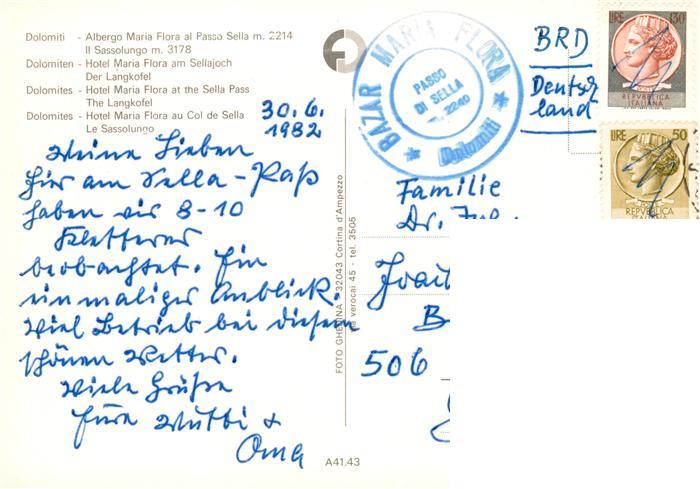 Dolomiti - Albergo Maria Flora al Passo Sella m. 2214
Il Sassolungo m. 3178
Dolomiten - Hotel Maria Flora am Sellajoch
Der Langkofel
Dolomites - Hotel Maria Flora at the Sella Pass
The Langkofel
Dolomites - Hotel Maria Flora au Col de Sella
Le Sassolungo
30.6.
1982
Meine Lieben
hier am Sella-Paß
haben wir 8-10
Kletterer
beobachtet. Ein
einmaliger Anblick.
Viel Betrieb bei diesem
schönen Wetter.
Viele Grüße
Eure Mutti &
Oma
FOTO GHEDINA - 32043 Cortina d'Ampezzo
via verocai 45 - tel. 3505
A41.43
BAZAR MARIA FLORA
PASSO
DI SELLA
m. 2240
Dolomiti
BRD
Deutsch
land
LIRE 130
REPVBBLICA
ITALIANA
LIRE 50
REPVBBLICA
ITALIANA
Familie
Dr.
B
506